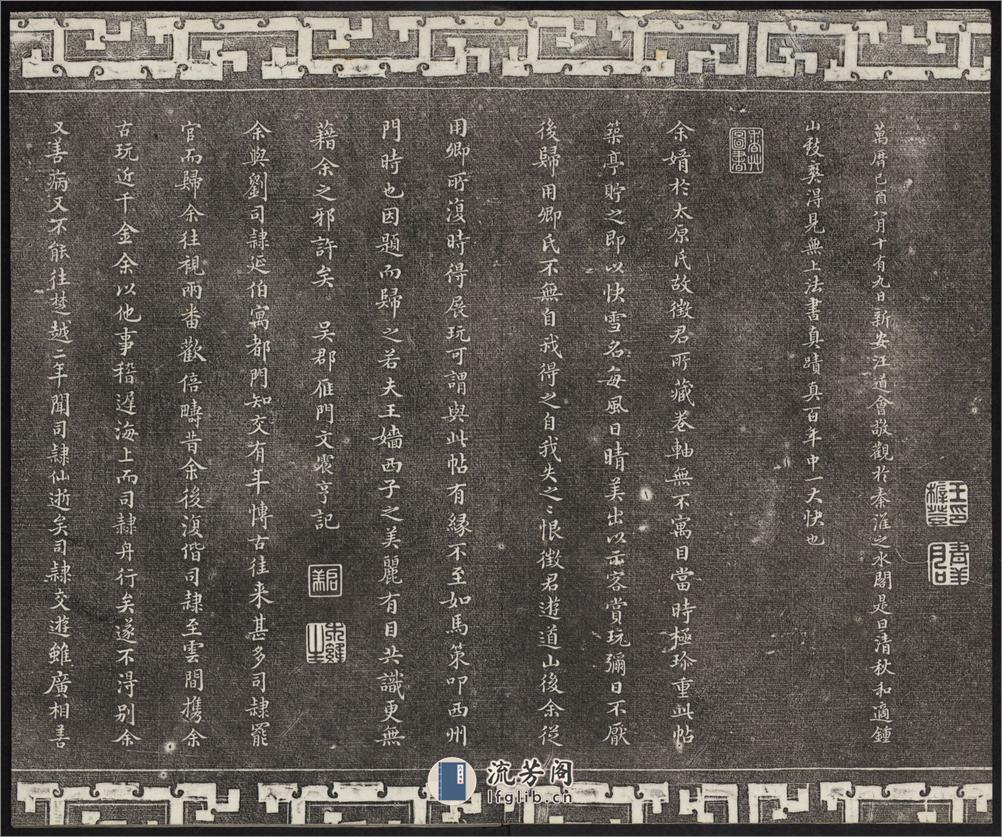 萬曆己酉八月十有九日新安江道會敬觀於秦淮之水閣是日清秋和適鍾
山發爽得見無上法書真蹟真百年中一大快也
余婿於太原氏故徵君所藏卷軸無不寓目當時極珍重此帖
築亭貯之即以快雪名每風日晴美出以示客賞玩彌日不厭
後歸用卿氏不無自我得之自我失之之恨徵君遊道山後余從
用卿所復時得展玩可謂與此帖有緣不至如馬策叩西州
門時也因題而歸之若夫王嬙西子之美麗有目共識更無
藉余之邪許矣 吳郡雁門文震亨記
余與劉司隸延伯寓都門知交有年博古往來甚多司隸罷
官而歸余往視兩番歡倍疇昔余後復偕司隸至雲間攜余
古玩近千金余以他事稽遲海上而司隸舟行矣遂不得別余
又善病又不能往楚越二年聞司隸仙逝矣司隸交遊雖廣相善
流芳阁
lfglib.cn